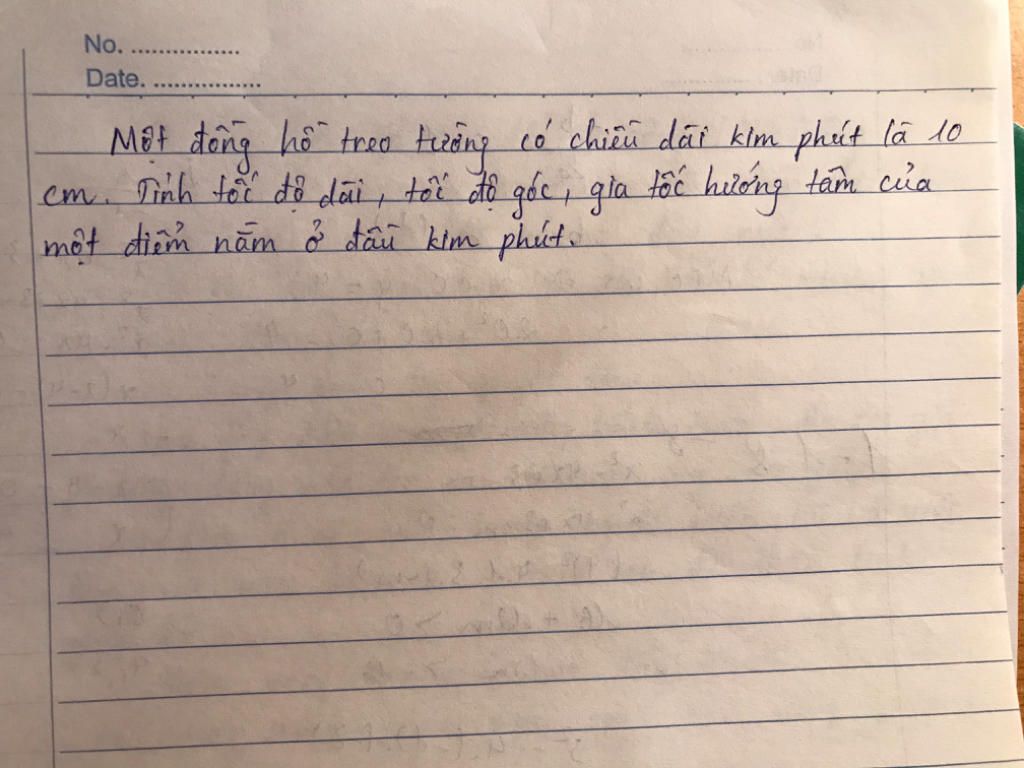 No. ................
Date. ................
Một đồng hồ treo tường có chiều dài kim phút là 10
cm. Tính tốc độ dài, tốc độ góc, gia tốc hướng tâm của
một điểm nằm ở đầu kim phút.